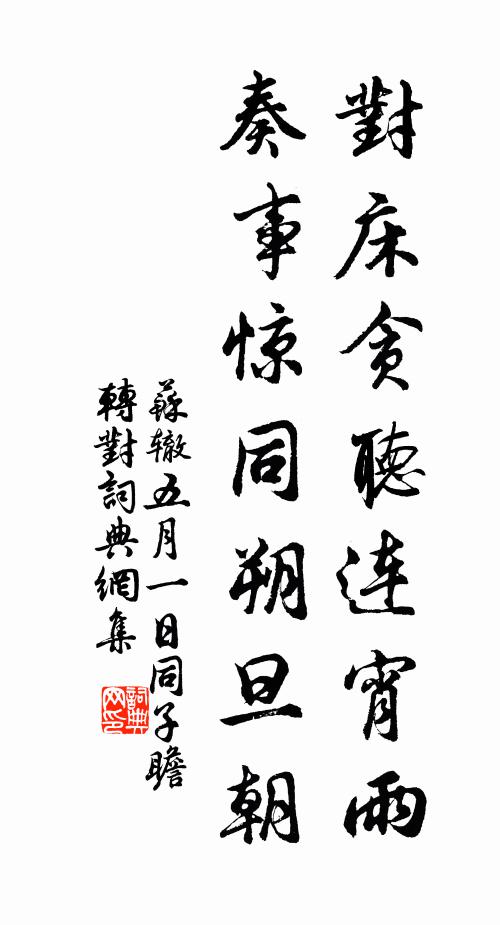 對床贪聽連宵雨
奏事惊同朔旦朝
蘇辙五月一日同子瞻
轉對詞典網集
詞典
网印